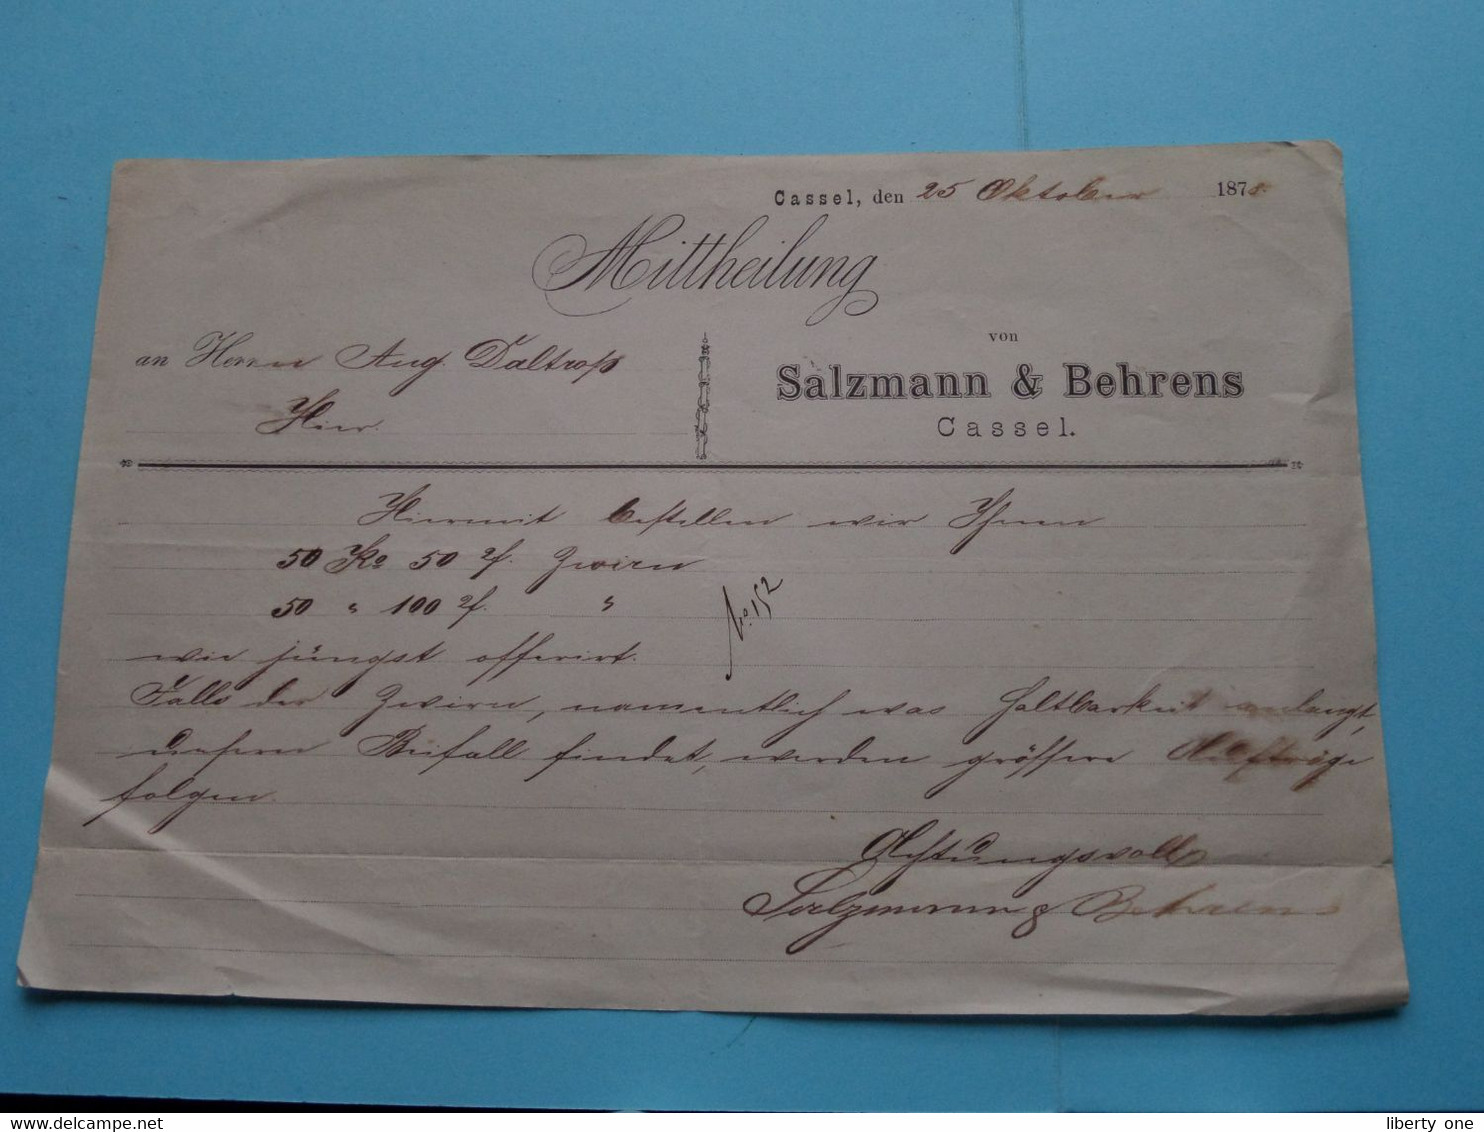 Cassel, den 25 Oktober 1878
Mittheilung
von
an Herrn Aug. Daltroß
Salzmann & Behrens
Hier.
Cassel.
Hiermit bestellen wir Ihnen
50 Ko 50 2f. Zwirn
50 " 100 2f. "
No. 152
wie jüngst offerirt.
Falls der Zwirn, namentlich was Haltbarkeit anlangt,
diesem Beifall findet, werden grössere Aufträge
folgen.
Achtungsvoll
Salzmann & Behrens
liberty one